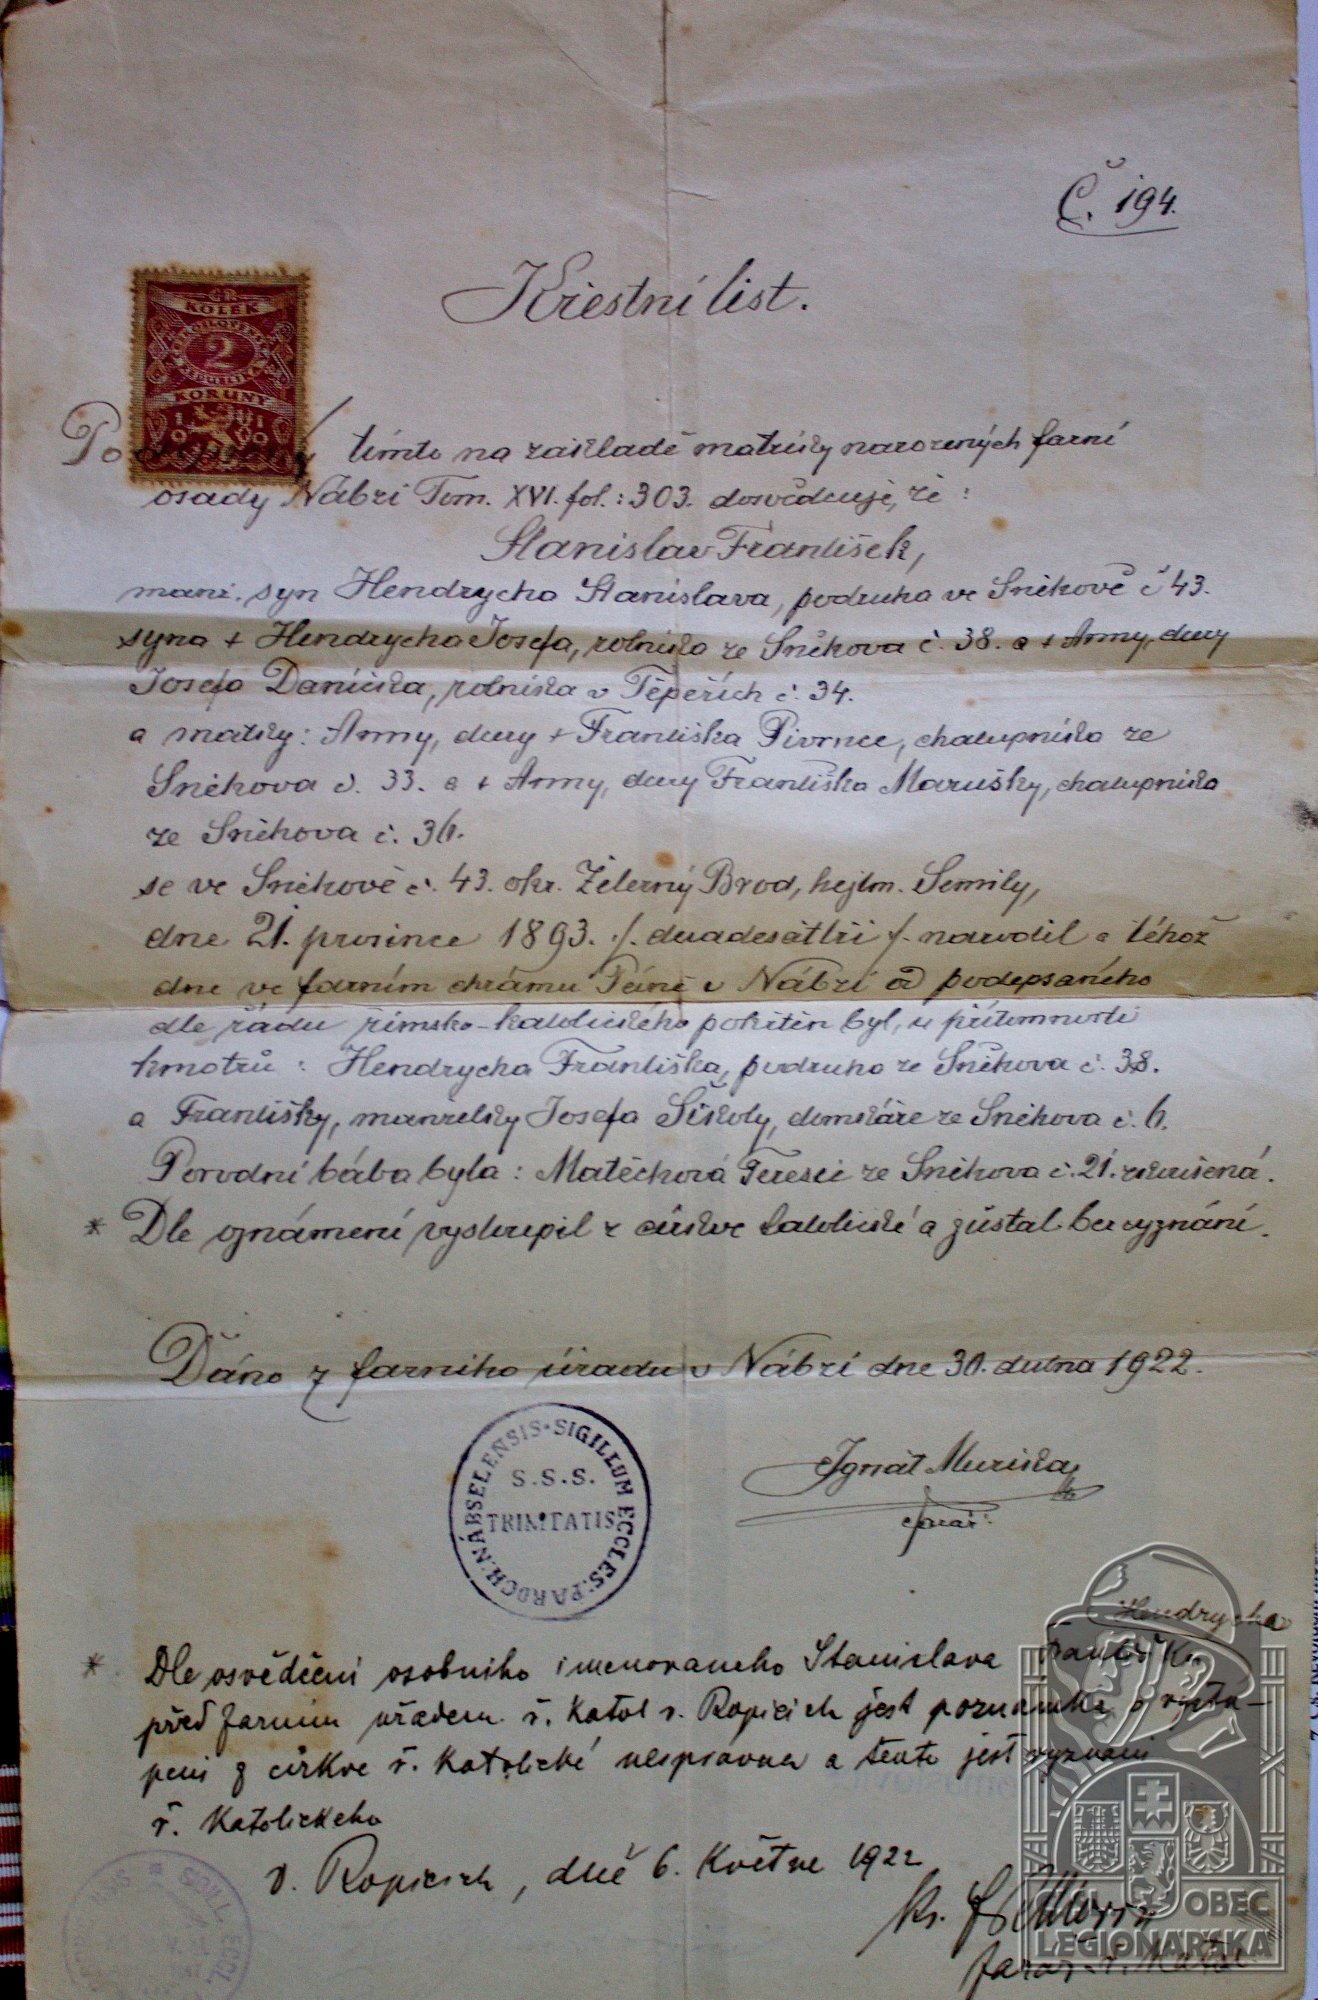 Č. 194.
Křestní list.
ČR.
KOLEK
2
KORUNY
1919
Podepsaný tímto na základě matriky narozených farní
osady Nábzí Tom. XVI. fol.: 303. dosvědčuje, že:
Stanislav František,
manž. syn Hendrycha Stanislava, podruha ve Sněhově č 43.
syna + Hendrycha Josefa, rolníka ze Sněhova č. 38. a + Anny, dcery
Josefa Daníčka, rolníka v Těpeřích č. 34.
a matky: Anny, dcery + Františka Pivrnce, chalupníka ze
Sněhova č. 33. a + Anny, dcery Františka Marušky, chalupníka
ze Sněhova č. 36.
se ve Sněhově č. 43. okr. Železný Brod, hejtm. Semily,
dne 21. prosince 1893. ./. devadesáttři /. narodil a téhož
dne ve farním chrámu Páně v Nábzí od podepsaného
dle řádu římsko-katolického pokřtěn byl, u přítomnosti
kmotrů: Hendrycha Františka, podruha ze Sněhova č. 38.
a Františky, manželky Josefa Šikoly, domkáře ze Sněhova č. 6.
Porodní bába byla: Matěchová Terezie ze Sněhova č. 21. zkoušená.
* Dle oznámení vystoupil z církve katolické a zůstal bez vyznání.
Dáno z farního úřadu v Nábzí dne 30. dubna 1922.
SIGILLUM ECCLES. PAROCH. NÁBSELENSIS
S.S.S.
TRINITATIS
Ignát Muzika
farář.
Hendrycha
* Dle osvědčení osobního jmenovaného Stanislava Františka
před farním úřadem ř. katol v. Ropicích jest poznámka o vystou-
pení z církve ř. katolické nesprávna a tento jest vyznání
ř. katolického
v. Ropicích, dně 6. Května 1922
SIGIL. ECCL.
farář ř. katol.
ČSL. OBEC
LEGIONÁŘSKÁ